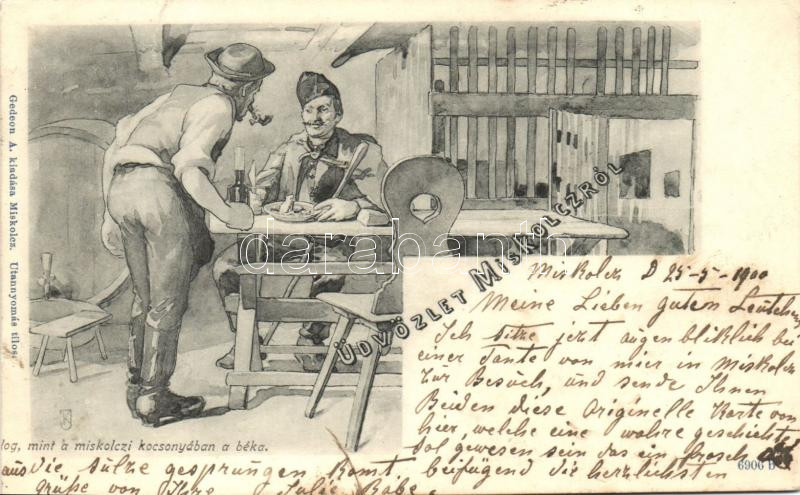 Gedeon A. kiadása Miskolcz. Utannyomás tilos.
ÜDVÖZLET MISKOLCZRÓL
darabanth
Miskolcz D 25-5-1900
Meine Lieben guten
Ich sitze jezt augenbliklich bei
einer Tante von mir in Miskolcz
zur Besuch, und sende Ihnen
Beiden diese Originelle Karte von
hier, welche eine wahre geschichte
sol gewesen sein das ein Frosch
log, mint a miskolczi kocsonyában a béka.
6906 B
aus die Sülze gesprungen komt beifügend die herzlichsten
Grüße von Ihre Julie Babe.